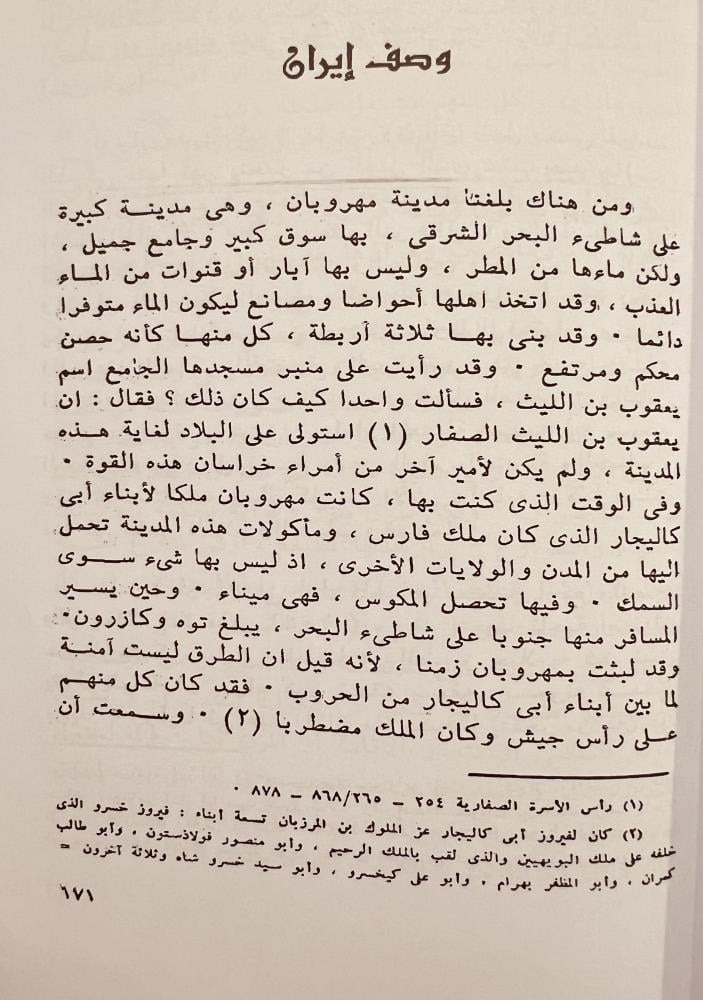 وصف إيران
ومن هناك بلغنا مدينة مهروبان ، وهى مدينة كبيرة
على شاطىء البحر الشرقى ، بها سوق كبير وجامع جميل ،
ولكن ماءها من المطر ، وليس بها آبار أو قنوات من الماء
العذب ، وقد اتخذ أهلها أحواضا ومصانع ليكون الماء متوفرا
دائما • وقد بنى بها ثلاثة أربطة ، كل منها كأنه حصن
محكم ومرتفع • وقد رأيت على منبر مسجدها الجامع اسم
يعقوب بن الليث ، فسألت واحدا كيف كان ذلك ؟ فقال : ان
يعقوب بن الليث الصفار (١) استولى على البلاد لغاية هذه
المدينة ، ولم يكن لأمير آخر من أمراء خراسان هذه القوة •
وفى الوقت الذى كنت بها ، كانت مهروبان ملكا لأبناء أبى
كاليجار الذى كان ملك فارس ، ومأكولات هذه المدينة تحمل
اليها من المدن والولايات الأخرى ، اذ ليس بها شىء سوى
السمك • وفيها تحصل المكوس ، فهى ميناء • وحين يسير
المسافر منها جنوبا على شاطىء البحر ، يبلغ توه وكازرون •
وقد لبثت بمهروبان زمنا ، لأنه قيل ان الطرق ليست آمنة
لما بين أبناء أبى كاليجار من الحروب • فقد كان كل منهم
على رأس جيش وكان الملك مضطربا (٢) • وسمعت أن
(١) رأس الأسرة الصفارية ٢٥٤ – ٨٦٨/٢٦٥ – ٨٧٨ •
(٢) كان لفيروز أبى كاليجار عز الملوك بن المرزبان تسعة أبناء : فيروز خسرو الذى
خلفه على ملك البويهيين والذى لقب بالملك الرحيم ، وأبو منصور فولاذستون ، وأبو طالب
كمران ، وأبو المظفر بهرام • وأبو على كيخسرو ، وأبو سيد خسرو شاه وثلاثة آخرون =
٦٧١